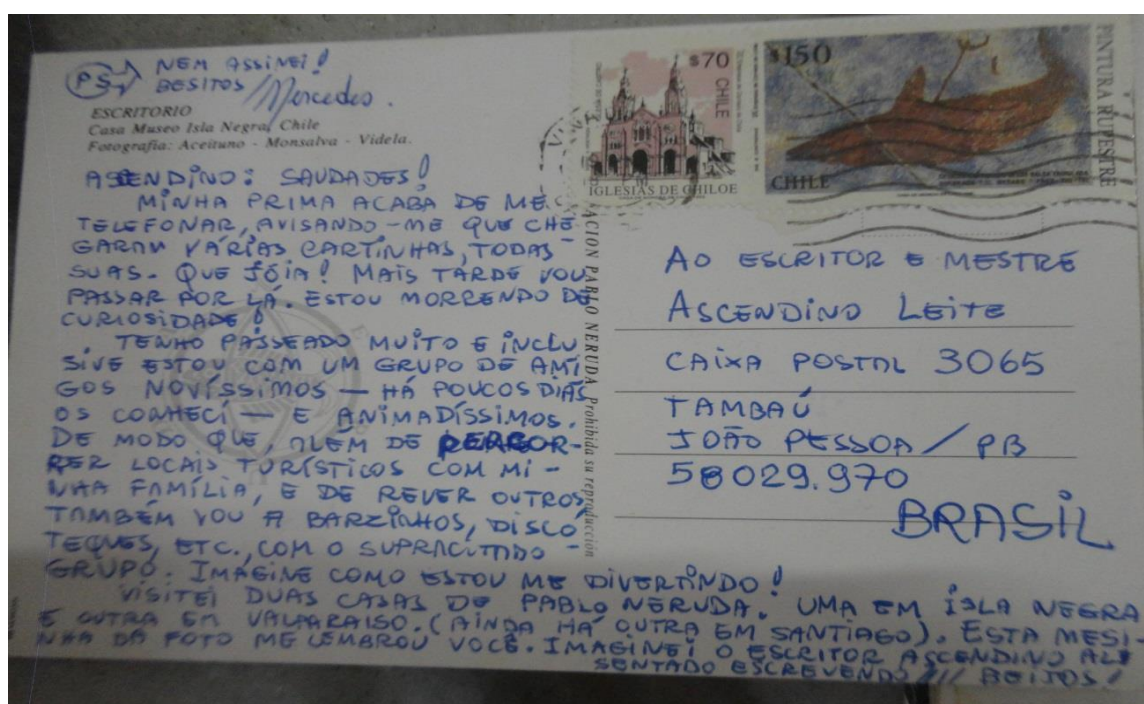 PS → NEM ASSINEI!
BESITOS / Mercedes.
ESCRITORIO
Casa Museo Isla Negra, Chile
Fotografía: Aceituno - Monsalva - Videla.
ASCENDINO: SAUDADES!
MINHA PRIMA ACABA DE ME
TELEFONAR, AVISANDO-ME QUE CHE
GARAM VÁRIAS CARTINHAS, TODAS
SUAS. QUE JÓIA! MAIS TARDE VOU
PASSAR POR LÁ. ESTOU MORRENDO DE
CURIOSIDADE!
TENHO PASSEADO MUITO E INCLU
SIVE ESTOU COM UM GRUPO DE AMI
GOS NOVÍSSIMOS — HÁ POUCOS DIAS
OS CONHECÍ — E ANIMADÍSSIMOS.
DE MODO QUE, ALEM DE PERCOR-
RER LOCAIS TURÍSTICOS COM MI-
NHA FAMÍLIA, E DE REVER OUTROS,
TAMBÉM VOU A BARZINHOS, DISCO
TEQUES, ETC., COM O SUPRACITADO -
GRUPO. IMAGINE COMO ESTOU ME DIVERTINDO!
VISITEI DUAS CASAS DE PABLO NERUDA. UMA EM ISLA NEGRA
E OUTRA EM VALPARAISO. (AINDA HÁ OUTRA EM SANTIAGO). ESTA MESI
NHA DA FOTO ME LEMBROU VOCÊ. IMAGINEI O ESCRITOR ASCENDINO ALI
SENTADO ESCREVENDO /// BEIJOS!
ACION PABLO NERUDA Prohibida su reproducción
$70
CHILE
IGLESIAS DE CHILOE
$150
CHILE
PINTURA RUPESTRE
AO ESCRITOR E MESTRE
ASCENDINO LEITE
CAIXA POSTAL 3065
TAMBAÚ
JOÃO PESSOA / PB
58029.970
BRASIL